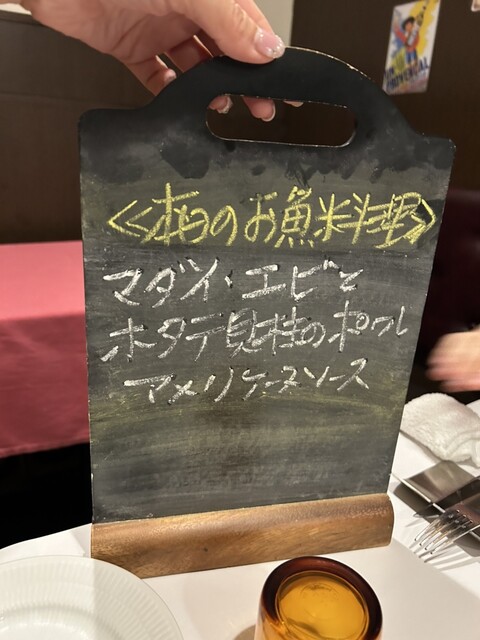 <<本日のお魚料理>>
マダイ・エビと
ホタテ貝柱のポワレ
アメリケーヌソース
PROVENÇAL